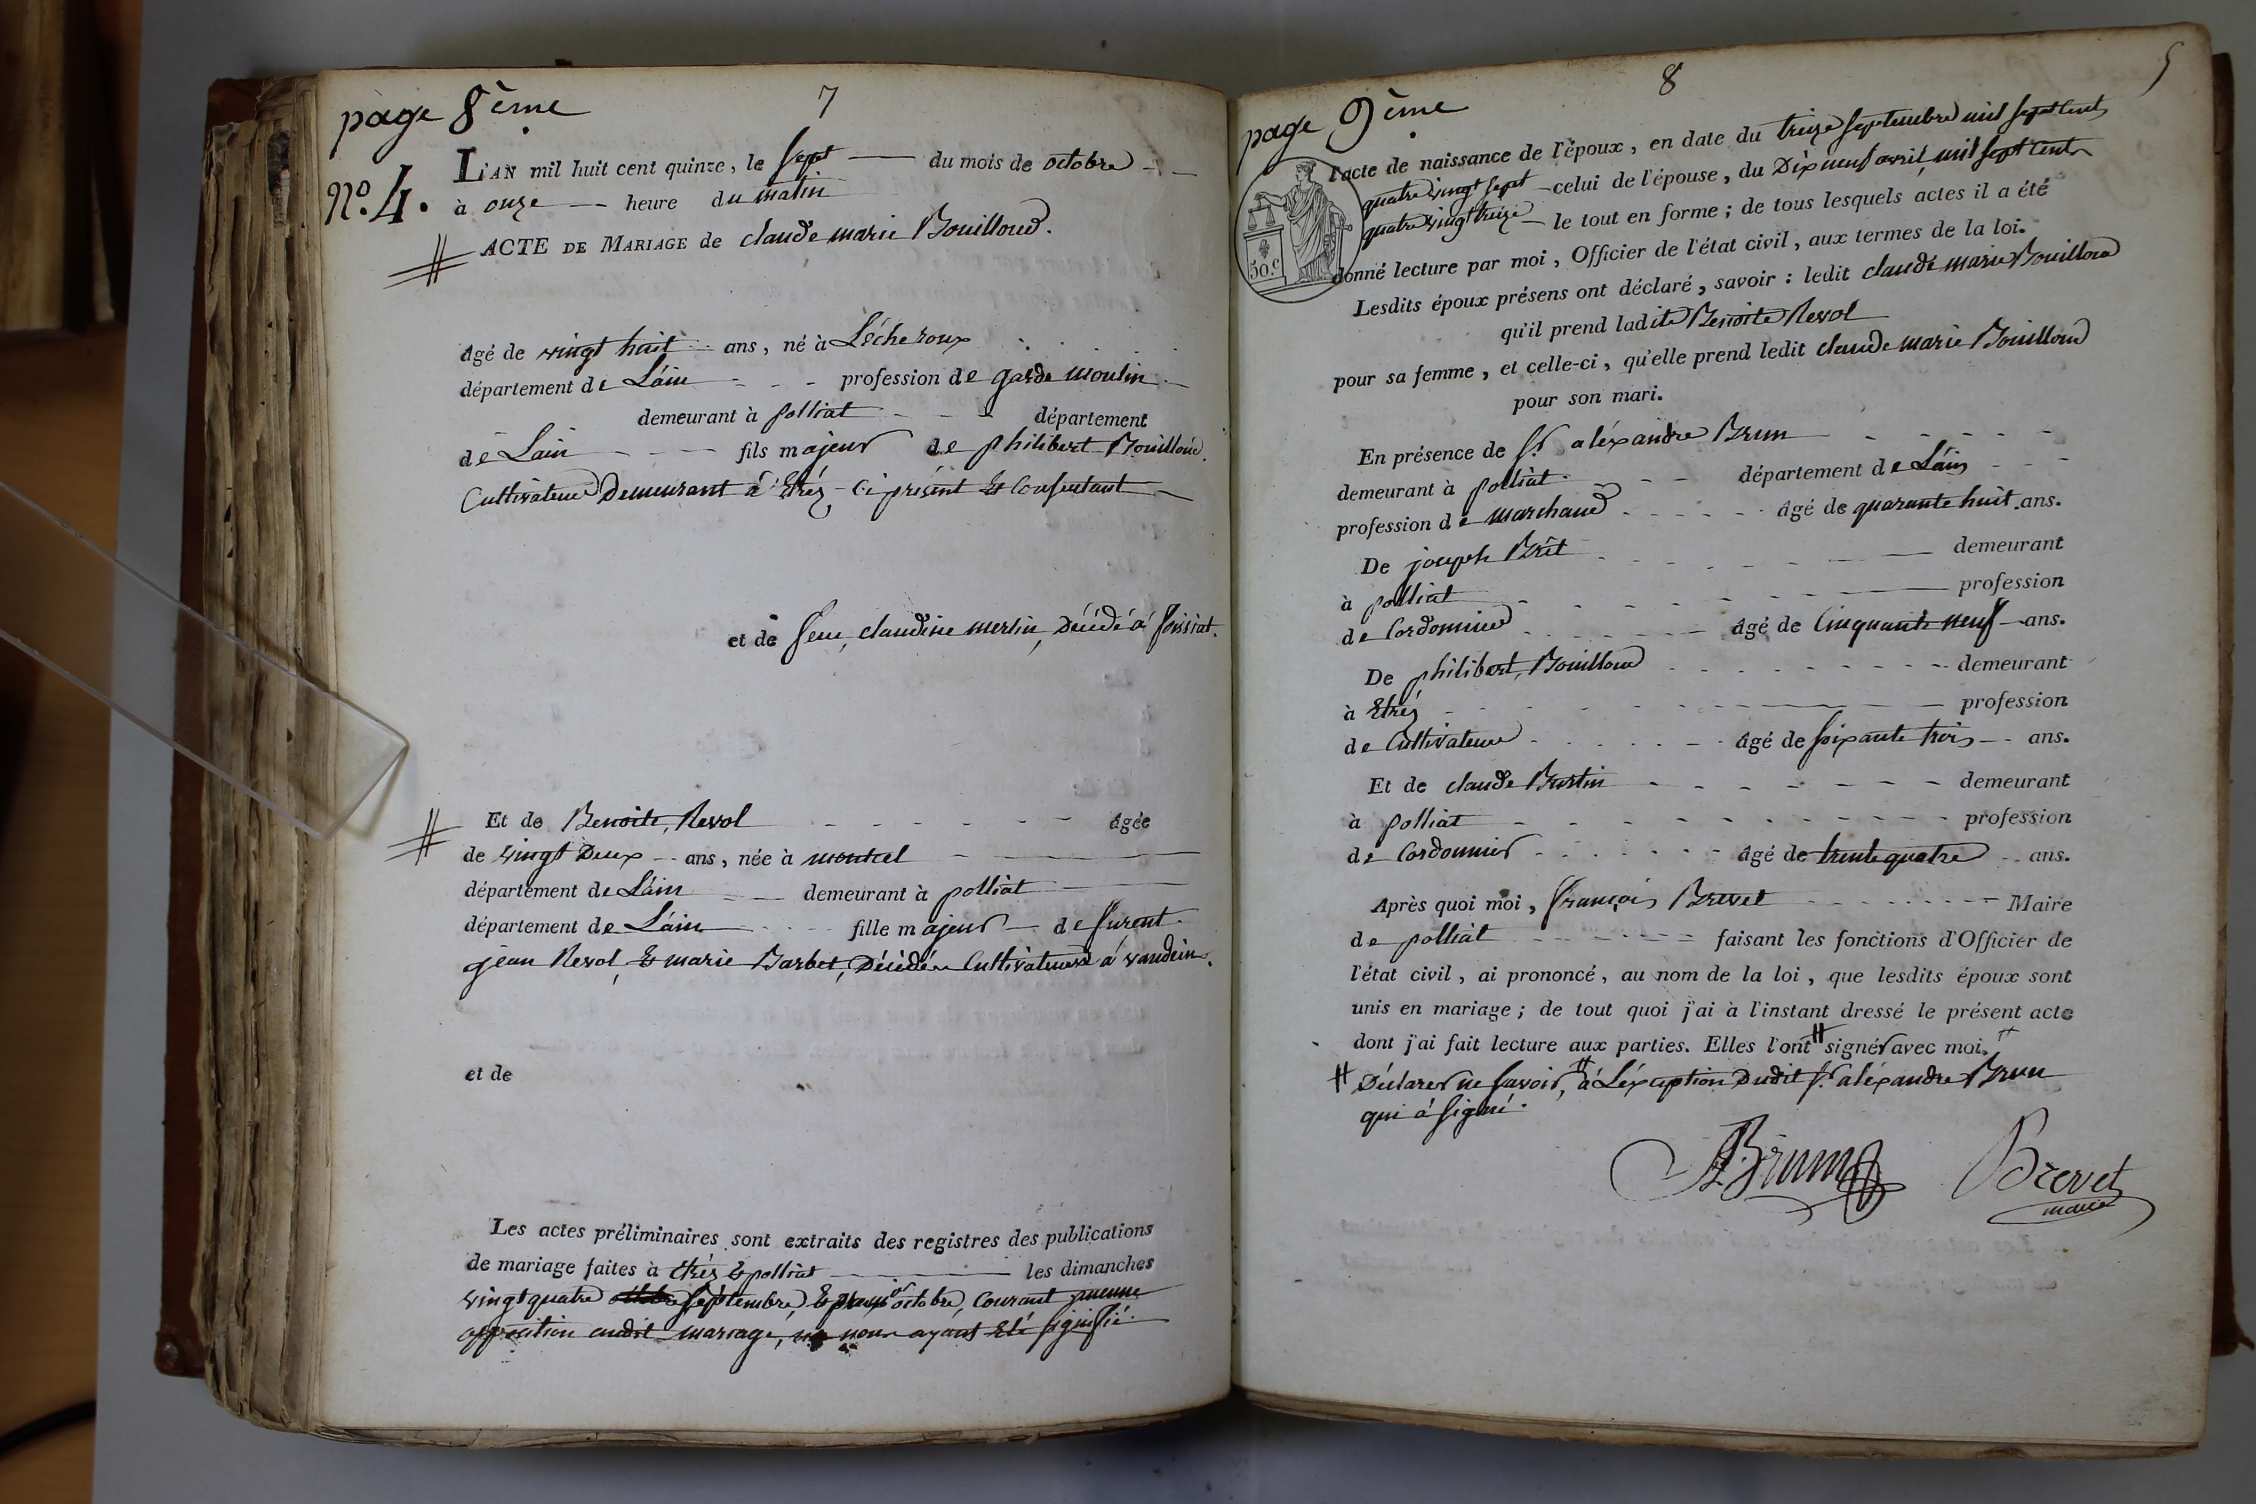 page 8ème
7
N.º 4.
L'AN mil huit cent quinze, le sept du mois de octobre
à onze heure du matin
ACTE DE MARIAGE de claude marie Bouilloud.
âgé de vingt huit ans, né à Lécheroux
département de L'áin profession de garde moulin
demeurant à polliat département
dé Lain fils majeur de philibert Bouilloud.
Cultivateur Demeurant á Etréz Ci présent Et Consentant
et de feue, claudine merlin, Décédé á foissiat.
Et de Benoite, Revol âgée
de vingt Deux ans, née à montcel
département de L'áin demeurant à polliat
département de L'áin fille majeur de furent
jean Revol, & marie Barbet, Décédés Cultivateurs á vandeins.
et de
Les actes préliminaires sont extraits des registres des publications
de mariage faites à Etréz & polliat les dimanches
vingt quatre septembre, & premier octobre, Courant aucune
opposition audit mariage, ne nous ayant Eté signifié.
page 9ème
8
5
50.c
l'acte de naissance de l'époux, en date du treize septembre mil sept cent
quatre vingt sept celui de l'épouse, du Dix neuf avril, mil sept cent
quatre vingt treize le tout en forme; de tous lesquels actes il a été
donné lecture par moi, Officier de l'état civil, aux termes de la loi.
Lesdits époux présens ont déclaré, savoir: ledit claude marie Bouilloud
qu'il prend ladite Benoite Revol
pour sa femme, et celle-ci, qu'elle prend ledit claude marie Bouilloud
pour son mari.
En présence de Sr. aléxandre Brun
demeurant à polliat département de L'áin
profession de marchand âgé de quarante huit ans.
De joseph Brêt demeurant
à polliat profession
de Cordonnier âgé de Cinquante neuf ans.
De philibert, Bouilloud demeurant
à Etréz profession
de Cultivateur âgé de soixante trois ans.
Et de claude Burtin demeurant
à polliat profession
de Cordonnier âgé de trente quatre ans.
Après quoi moi, françois Brevet Maire
de polliat faisant les fonctions d'Officier de
l'état civil, ai prononcé, au nom de la loi, que lesdits époux sont
unis en mariage; de tout quoi j'ai à l'instant dressé le présent acte
dont j'ai fait lecture aux parties. Elles l'ont # signér avec moi. #
# Déclarer ne savoir, # á L'éxception Dudit Sr. aléxandre Brun
qui á signé.
ABrun
Brevet
maire